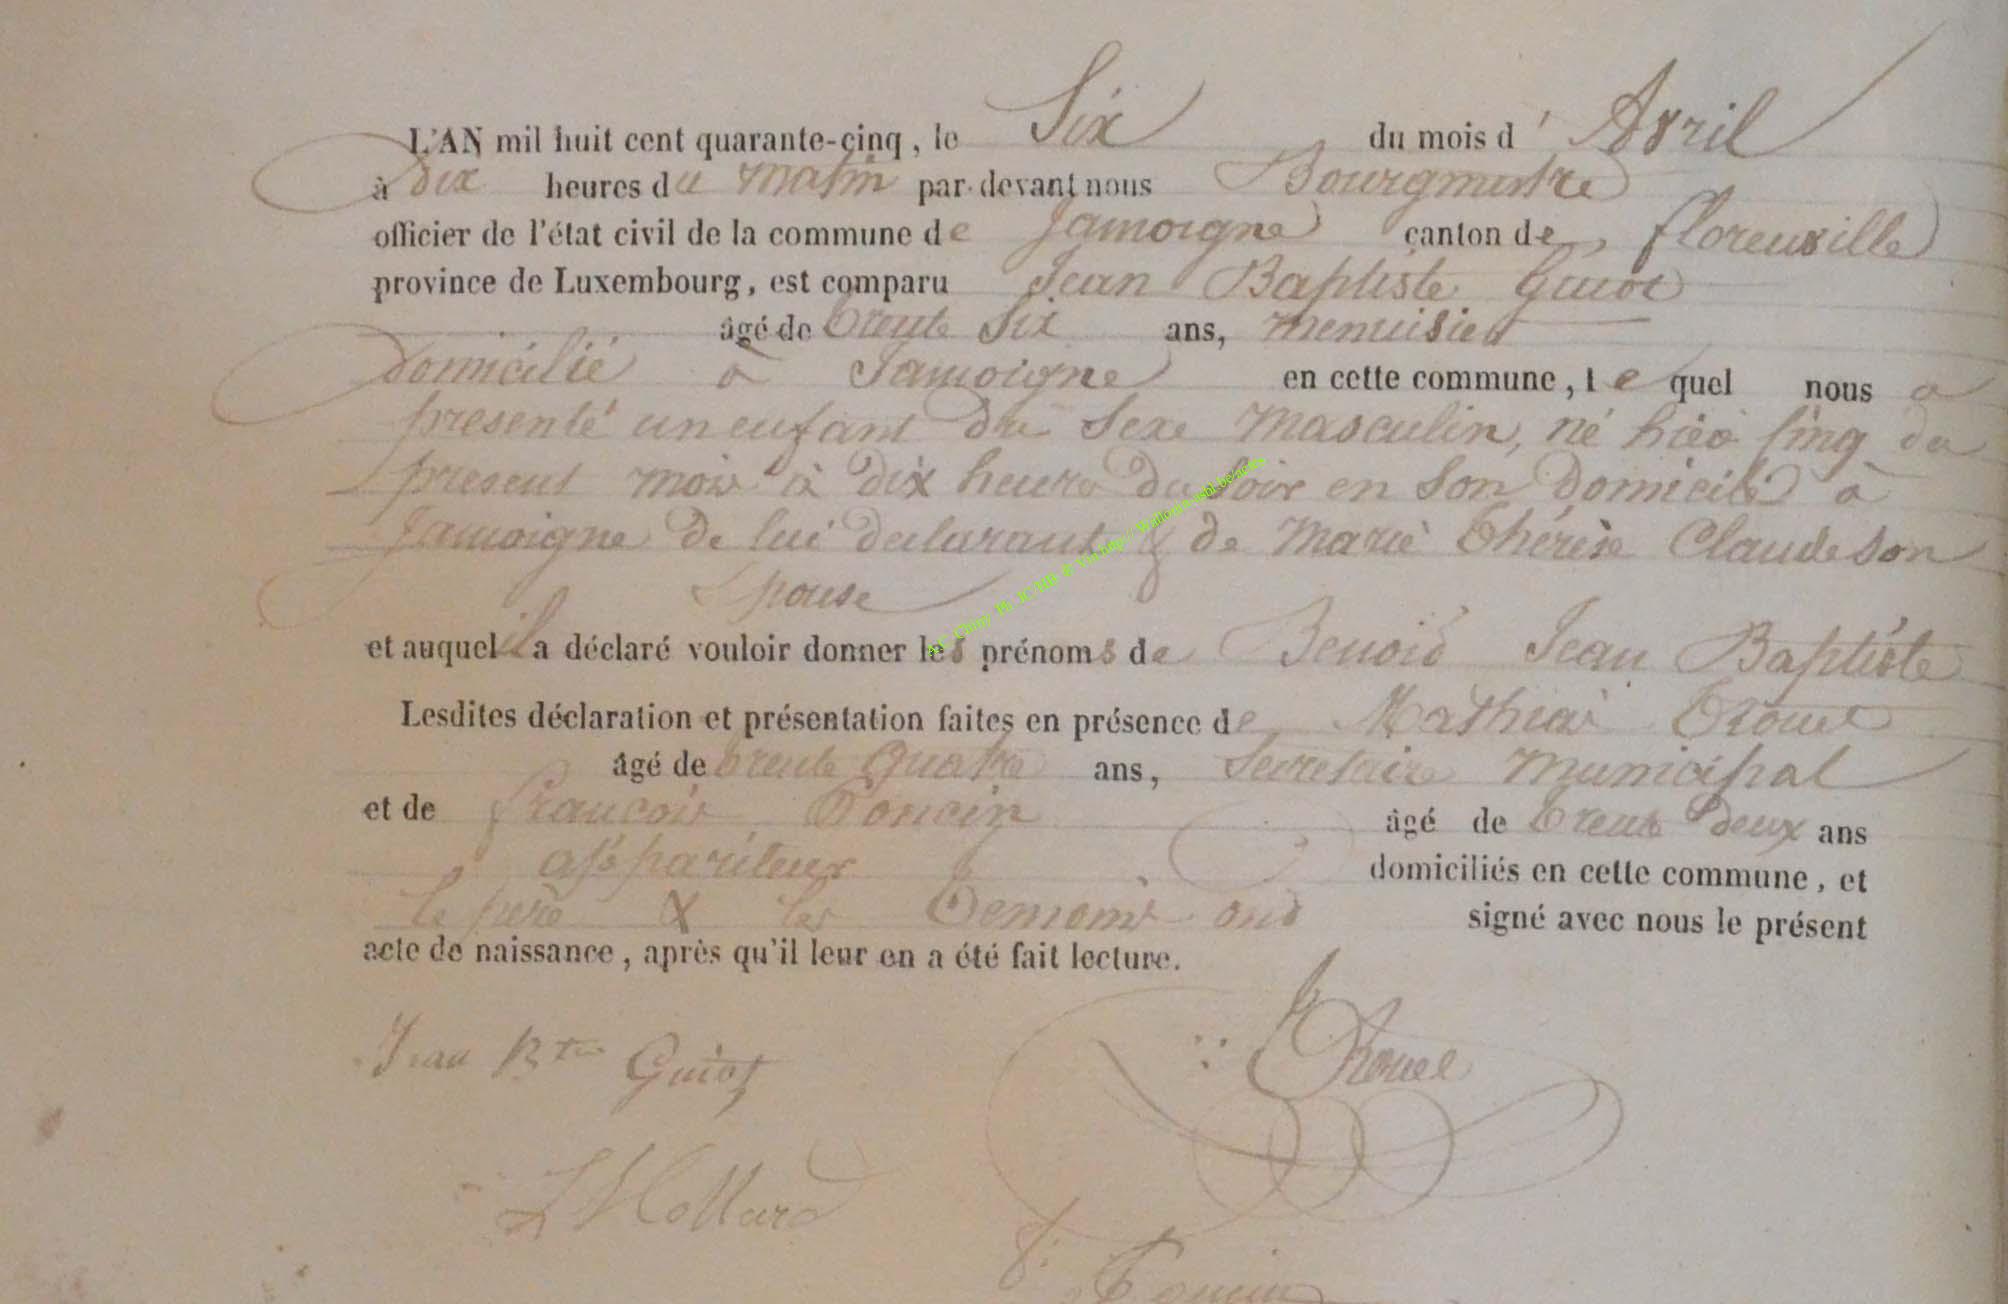 L'AN mil huit cent quarante-cinq, le Six du mois d'Avril
à dix heures du matin par-devant nous Bourgmestre
officier de l'état civil de la commune de Jamoigne canton de florenville
province de Luxembourg, est comparu Jean Baptiste Guiot
âgé de trente Six ans, menuisier
domicilié à Jamoigne en cette commune, lequel nous a
presenté un enfant du Sexe Masculin, né hier Cinq du
present mois à dix heures du Soir en Son domicile à
Jamoigne de lui declarant & de Marie Thérèse Claude son
Epouse
et auquel il a déclaré vouloir donner les prénoms de Benoit Jean Baptiste
Lesdites déclaration et présentation faites en présence de Mathias Trouet
âgé de trente quatre ans, Secretaire Municipal
et de francois Toncin âgé de trente deux ans
appariteur domiciliés en cette commune, et
le père & les temoins ont signé avec nous le présent
acte de naissance, après qu'il leur en a été fait lecture.
Jean Bte Guiot
Hollard
f:
A.C. Chiny Ph. JC/MB & Vis.http://Wallonica.asbl.be/actes